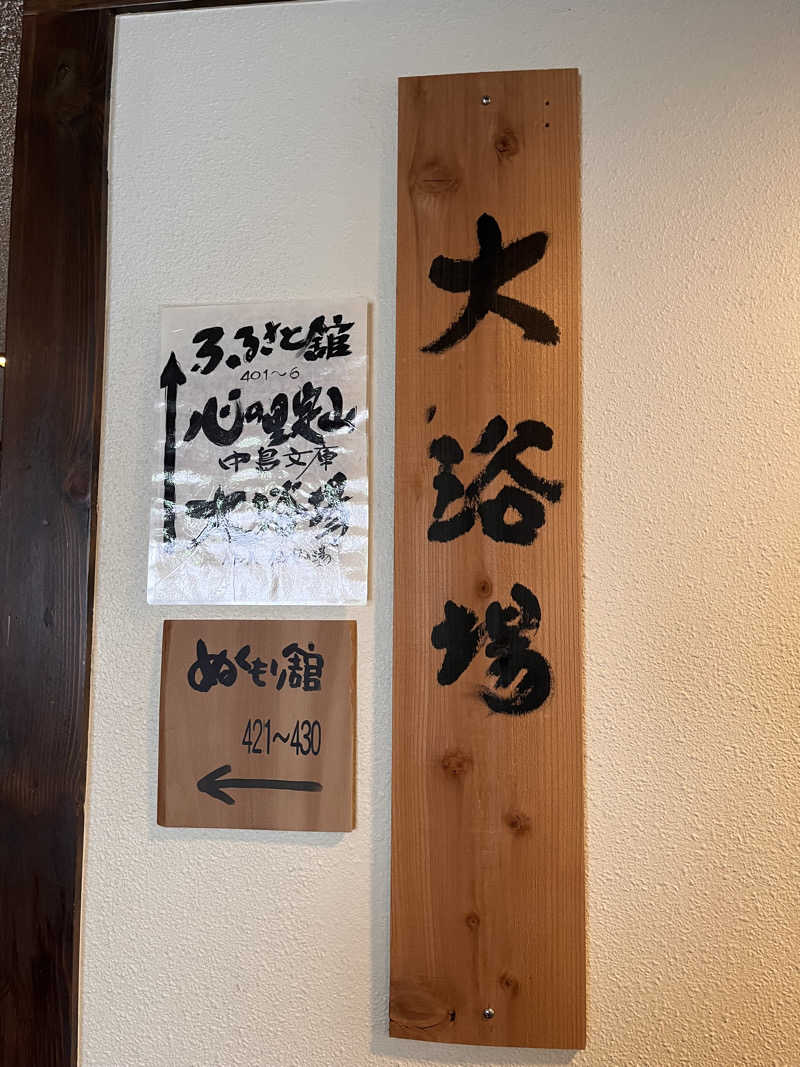 大浴場
ふるさと舘
401〜6
心の里定山
中島文庫
大浴場
ぬくもり舘
421〜430